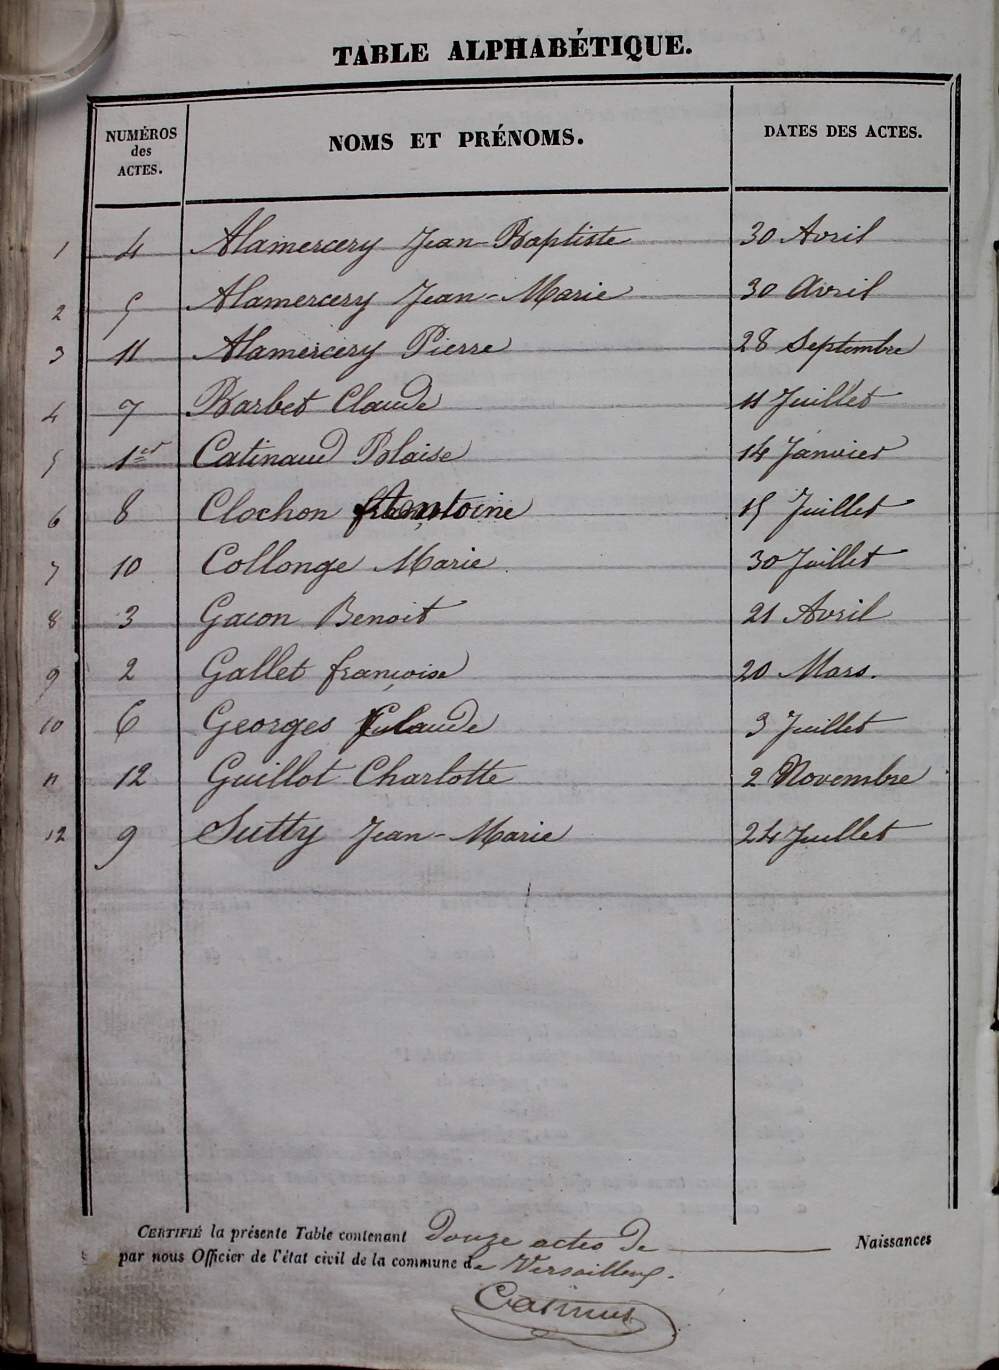 TABLE ALPHABÉTIQUE.
NUMÉROS des ACTES. NOMS ET PRÉNOMS. DATES DES ACTES.
1 4 Alamercery Jean-Baptiste 30 Avril
2 5 Alamercery Jean-Marie 30 Avril
3 11 Alamercery Pierre 28 Septembre
4 7 Barbet Claude 11 Juillet
5 1er Catinaud Blaise 14 Janvier
6 8 Clochon Antoine 15 Juillet
7 10 Collonge Marie 30 Juillet
8 3 Gacon Benoit 21 Avril
9 2 Gallet françoise 20 Mars.
10 6 Georges Claude 3 Juillet
11 12 Guillot Charlotte 2 Novembre
12 9 Sutty Jean-Marie 24 Juillet
CERTIFIÉ la présente Table contenant Douze actes de Naissances
par nous Officier de l'état civil de la commune de Versailleux.